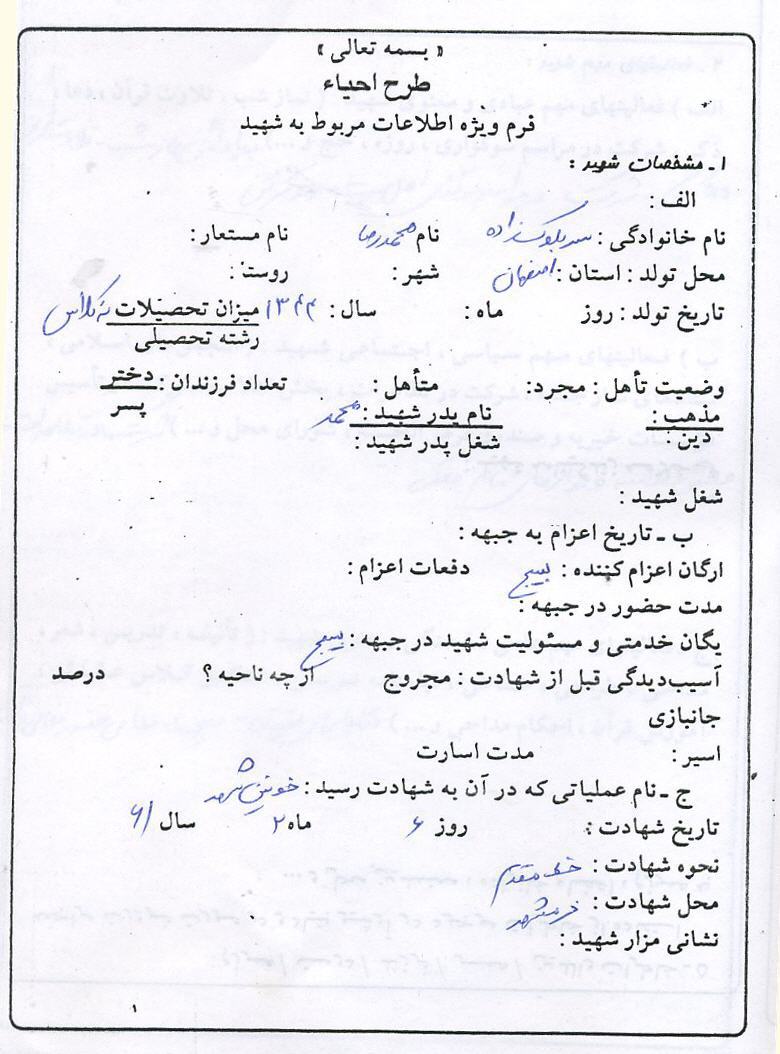 « بسمه تعالی »
طرح احیاء
فرم ویژه اطلاعات مربوط به شهید
۱ ـ مشخصات شهید :
الف :
نام خانوادگی : نام محمدرضا نام مستعار :
محل تولد : استان : اصفهان شهر : روستا :
تاریخ تولد : روز ماه : سال : ۱۳۴۴ میزان تحصیلات نه کلاس
رشته تحصیلی
وضعیت تأهل : مجرد : متأهل : تعداد فرزندان : دختر
پسر
مذهب : نام پدر شهید : محمد
دین : شغل پدر شهید :
شغل شهید :
ب ـ تاریخ اعزام به جبهه :
ارگان اعزام کننده : بسیج دفعات اعزام :
مدت حضور در جبهه :
یگان خدمتی و مسئولیت شهید در جبهه : بسیج
آسیب‌دیدگی قبل از شهادت : مجروح از چه ناحیه ؟ درصد
جانبازی
اسیر : مدت اسارت
ج ـ نام عملیاتی که در آن به شهادت رسید : خونین شهر
تاریخ شهادت : روز ۶ ماه ۲ سال ۶۱
نحوه شهادت : خط مقدم
محل شهادت : خرمشهر
نشانی مزار شهید :
۱